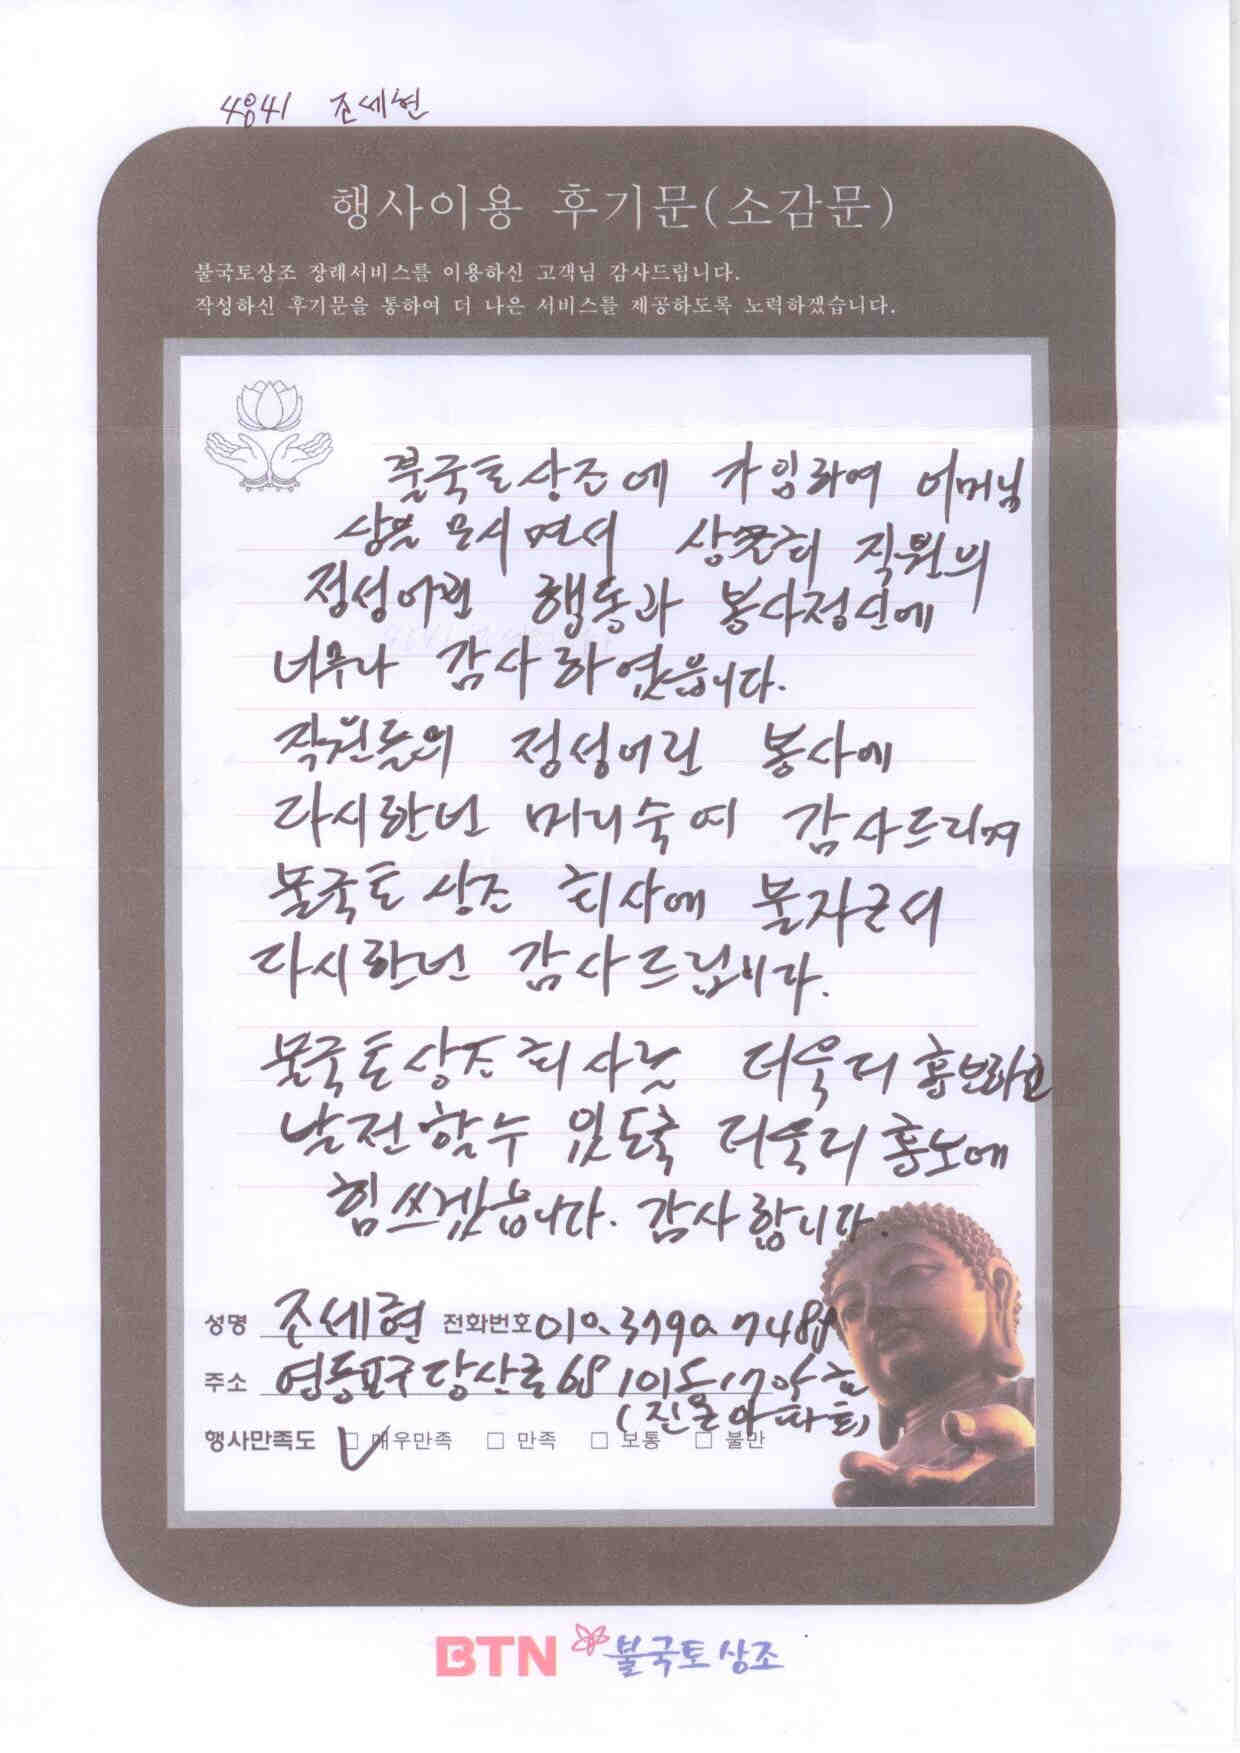 4841 조세현
행사이용 후기문(소감문)
불국토상조 장례서비스를 이용하신 고객님 감사드립니다.
작성하신 후기문을 통하여 더 나은 서비스를 제공하도록 노력하겠습니다.
불국토상조에 가입하여 어머님
상을 모시면서 상조회 직원의
정성어린 행동과 봉사정신에
너무나 감사하였읍니다.
직원들의 정성어린 봉사에
다시한번 머리숙여 감사드리며
불국토상조 회사에 불자로서
다시한번 감사드립니다.
불국토상조회사 더욱더 홍보하고
발전할수 있도록 더욱더 홍보에
힘쓰겠습니다. 감사합니다.
성명 조세현 전화번호 010.3790.7488
주소 영등포구 당산로 68 101동
아파트)
행사만족도 □ 매우만족 □ 만족 □ 보통 □ 불만
BTN 불국토상조